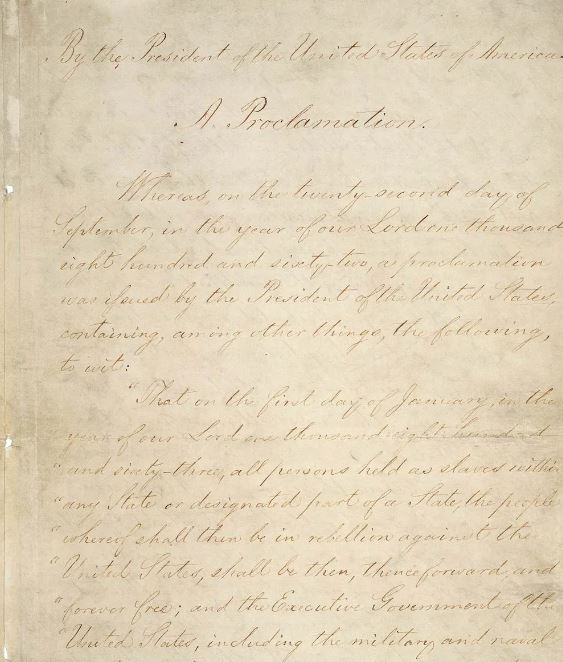 By the President of the United States of America.
A Proclamation.
Whereas, on the twenty-second day of
September, in the year of our Lord one thousand
eight hundred and sixty-two, a proclamation
was issued by the President of the United States,
containing, among other things, the following,
to wit:
"That on the first day of January, in the
"year of our Lord one thousand eight hundred
"and sixty-three, all persons held as slaves within
"any State or designated part of a State, the people
"whereof shall then be in rebellion against the
"United States, shall be then, thenceforward, and
"forever free; and the Executive Government of the
"United States, including the military and naval